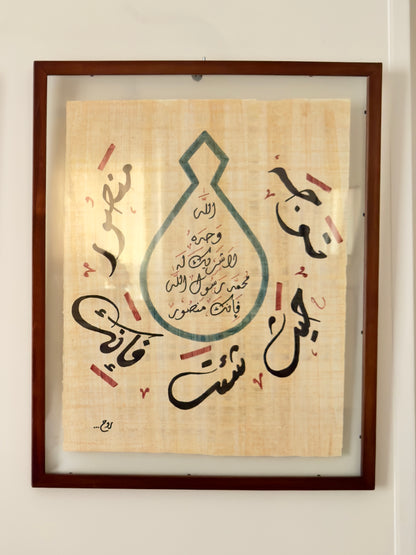 الله
وحده
لا شريك له
محمد رسول الله
فإنك منصور
توجه
حيث
شئت
فإنك
منصور
روح...